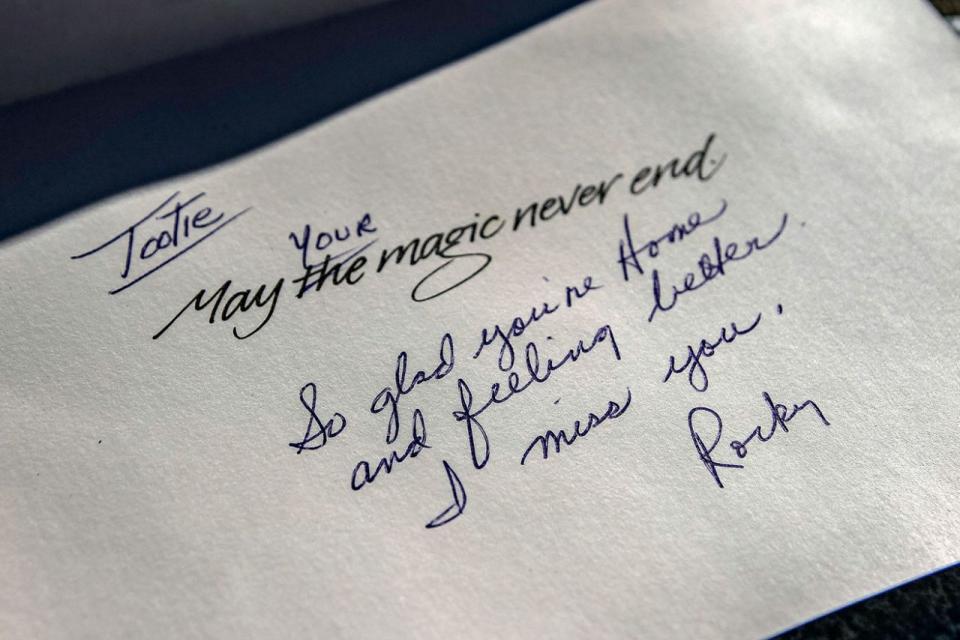 Tootie
YOUR
May the magic never end.
So glad you're Home
and feeling better.
I miss you.
Rocky